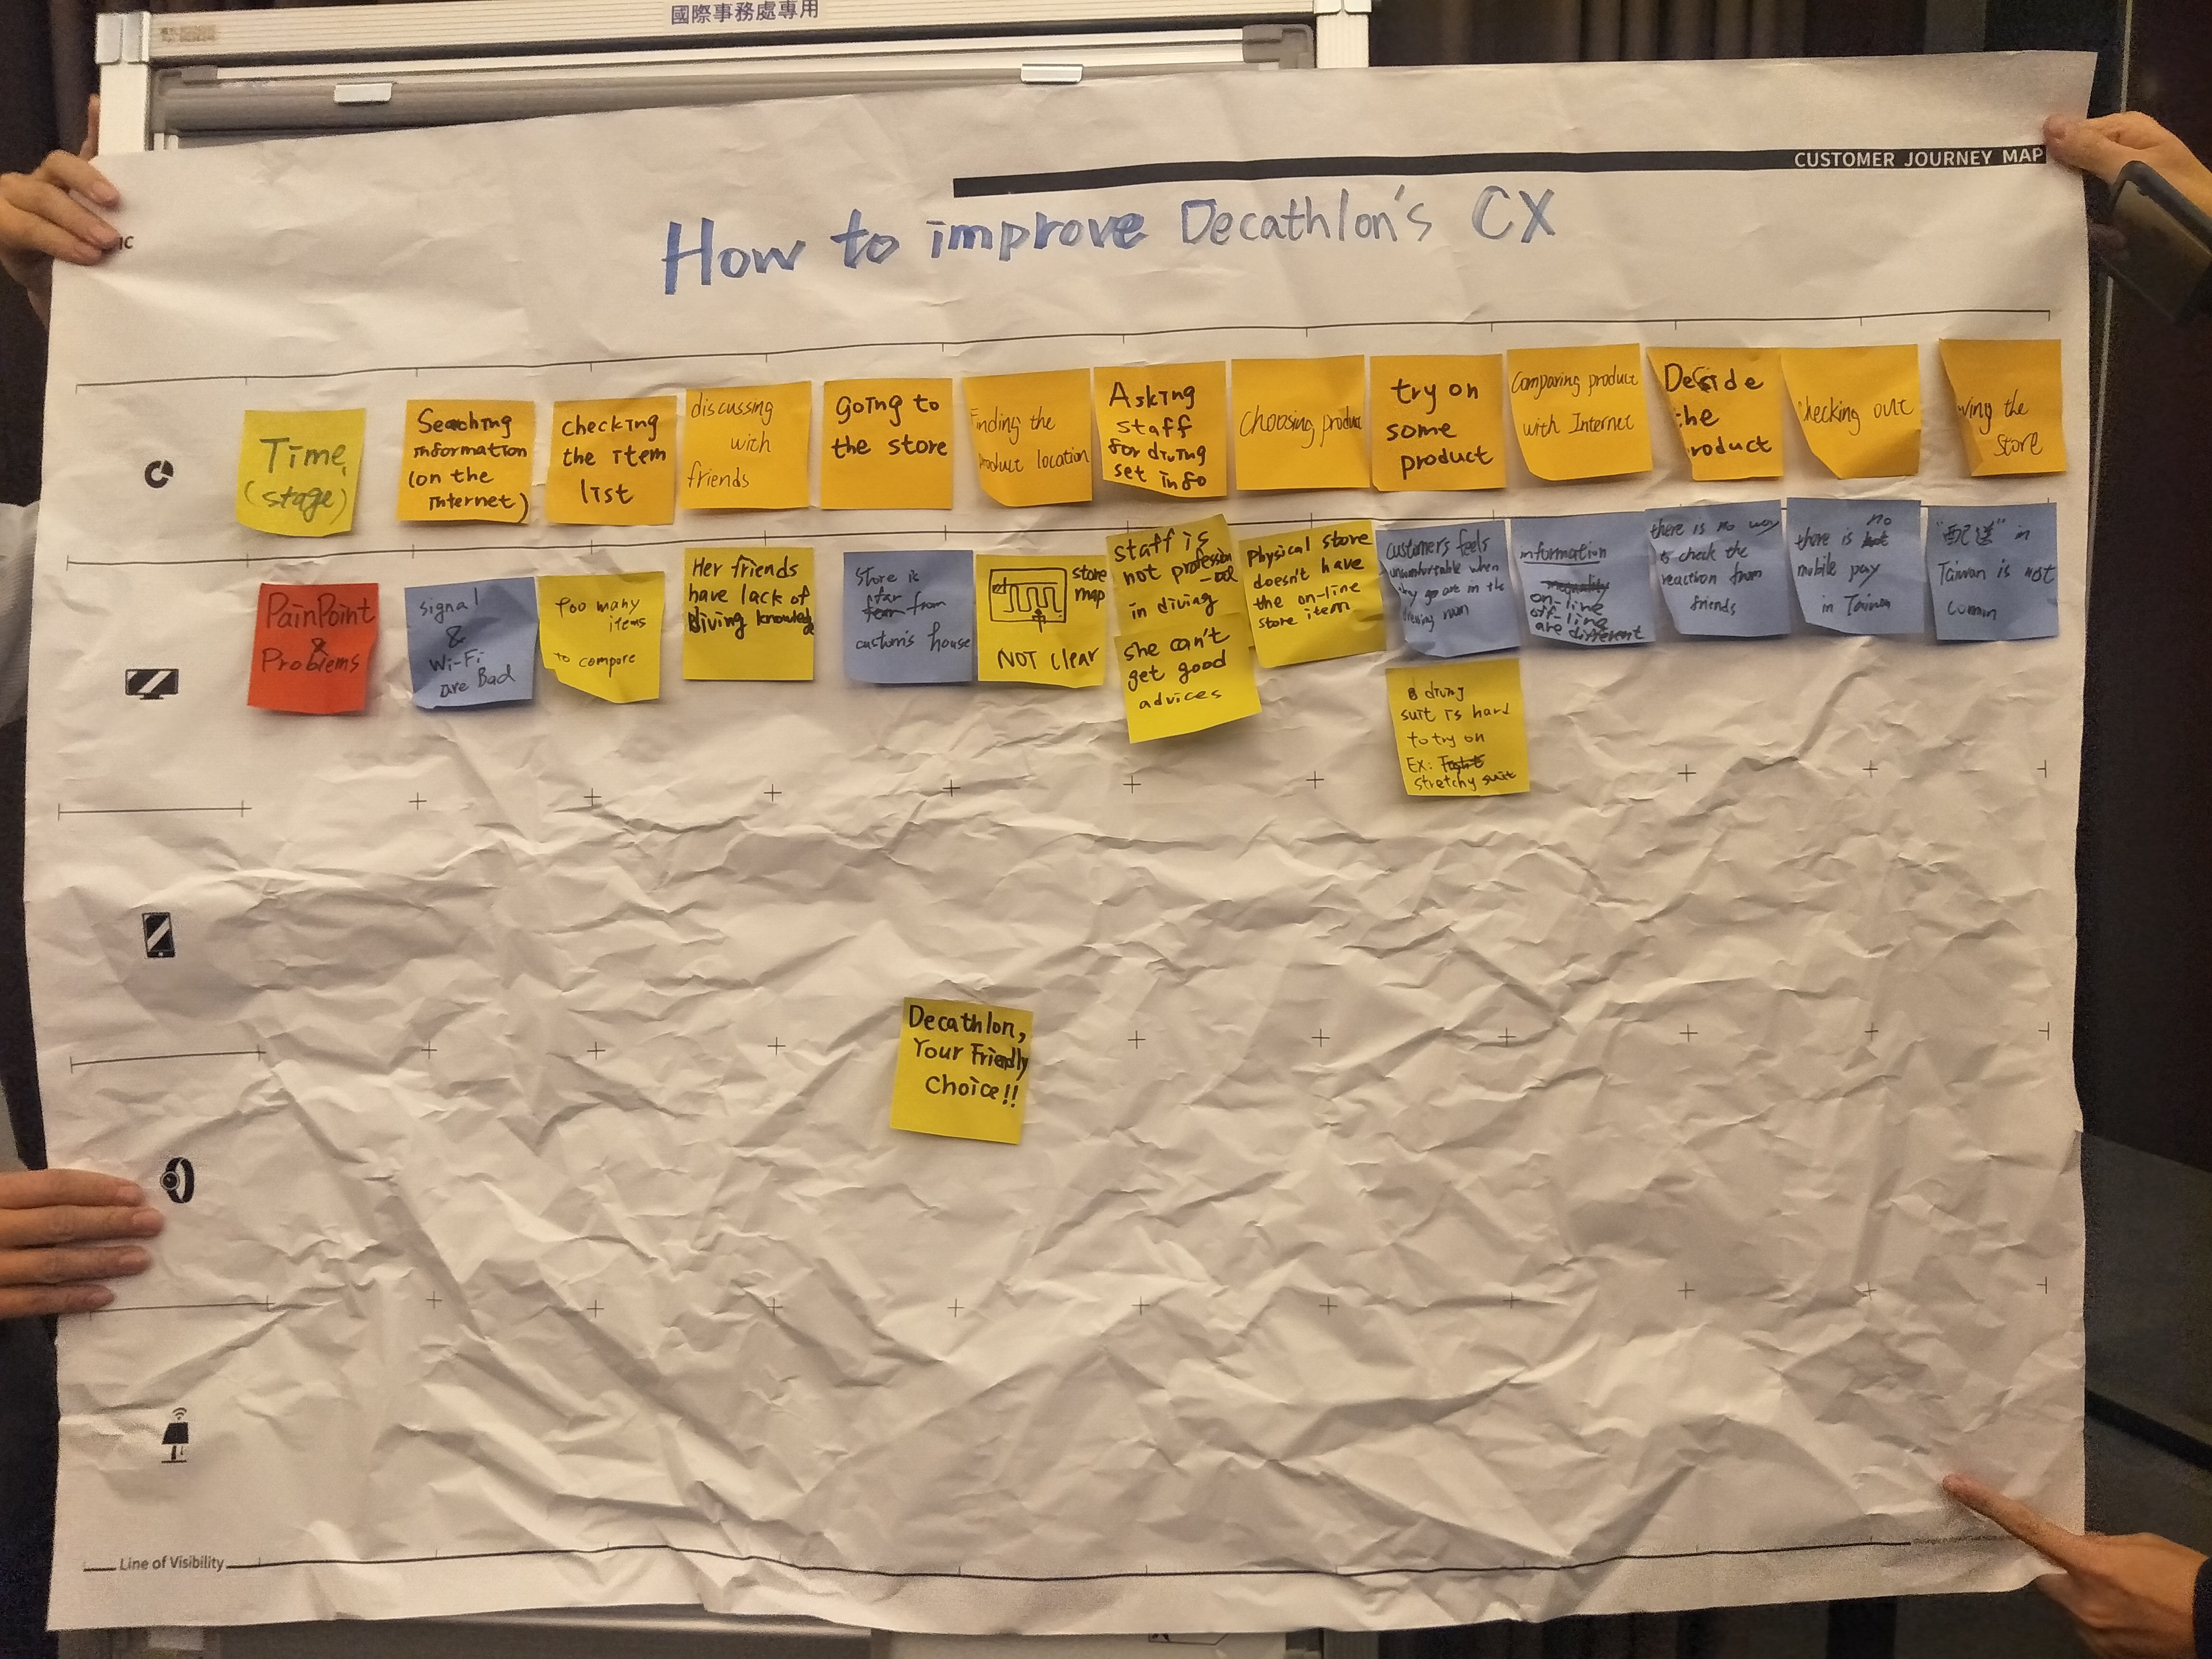 國際事務處專用
CUSTOMER JOURNEY MAP
How to improve Decathlon's CX
Time
(stage)
Seaching
information
(on the
internet)
checking
the item
list
discussing
with
friends
going to
the store
Finding the
product location
Asking
staff
for diving
set info
Choosing product
try on
some
product
Comparing product
with Internet
Decide
the
roduct
hecking out
ving the
store
PainPoint
&
Problems
signal
&
Wi-Fi
are Bad
Too many
items
to compare
Her friends
have lack of
diving knowledge
Store is
far
from
custom's house
store
map
NOT clear
staff is
not profession
-al
in diving
she can't
get good
advices
Physical store
doesn't have
the on-line
store item
customers feels
uncomfortable when
they go out in the
diving suit is hard
to try on
Ex:
stretchy suit
information
on-line
off-line
are different
there is no way
to check the
reaction from
friends
there is no
mobile pay
in Taiwan
"配送" in
Taiwan is not
comm
Decathlon,
Your Friendly
Choice!!
Line of Visibility